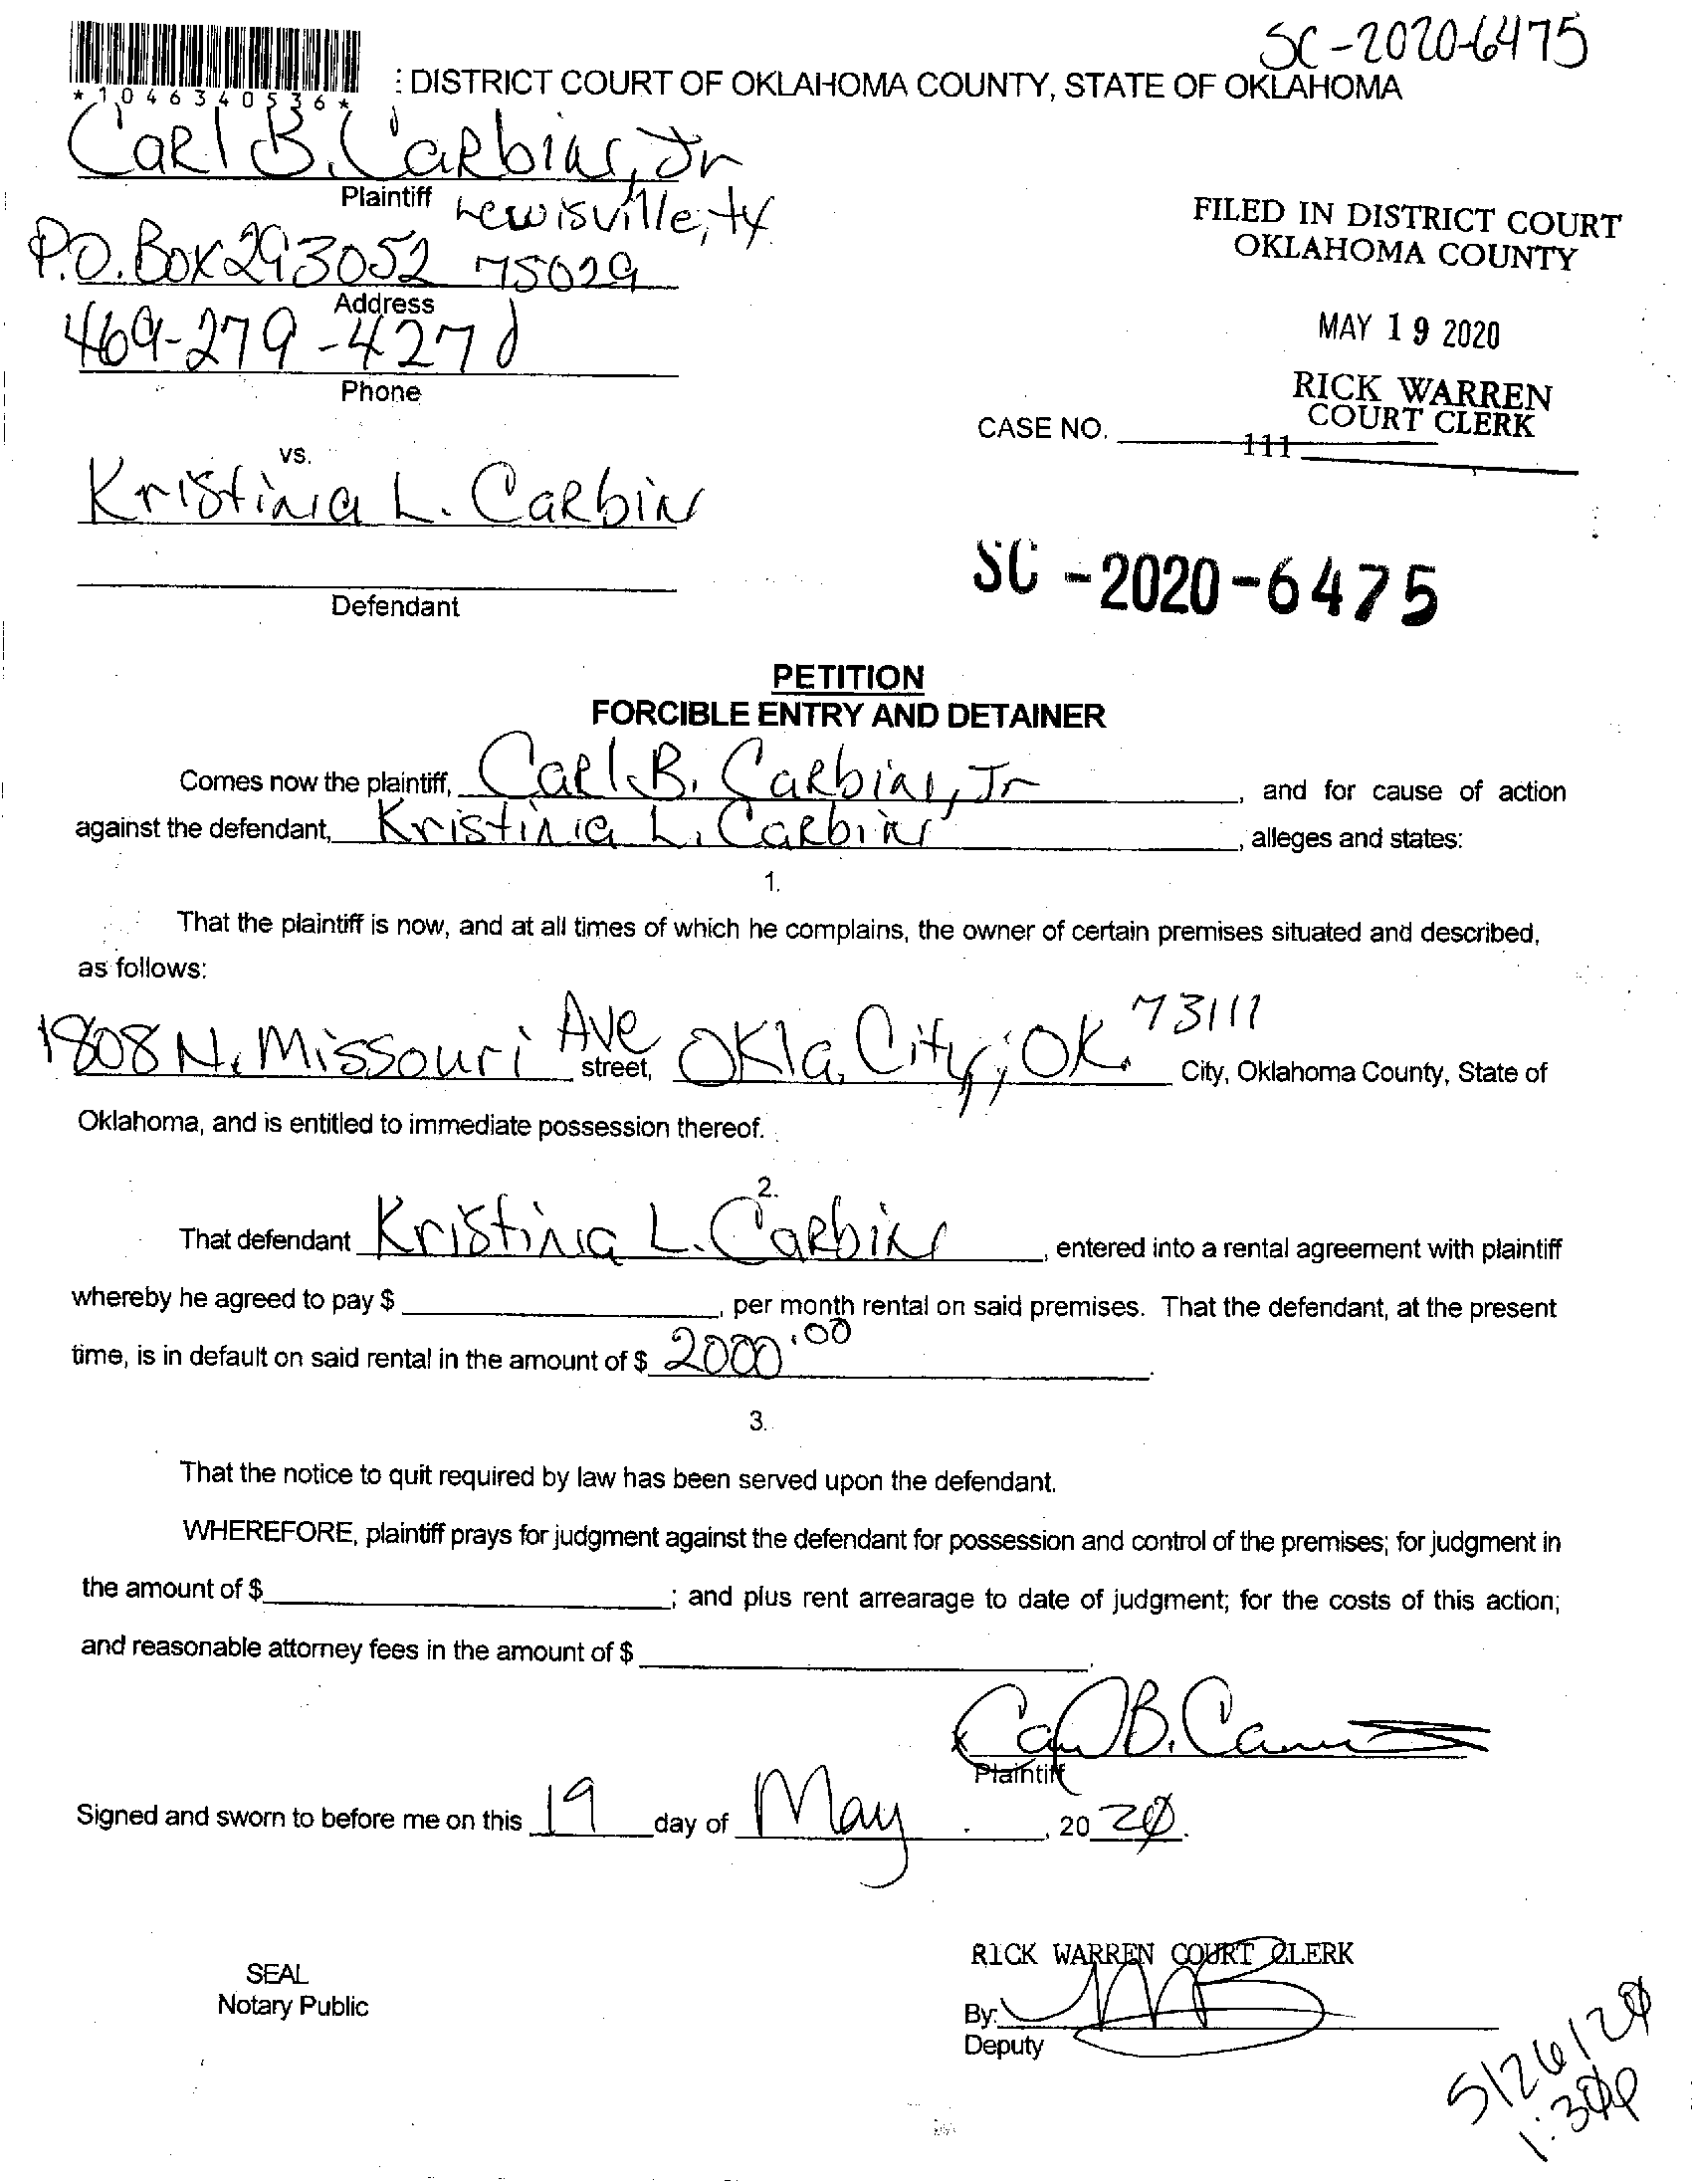 SC-2020-6475
: DISTRICT COURT OF OKLAHOMA COUNTY, STATE OF OKLAHOMA
* 1 0 4 6 3 4 0 5 3 6 *
Carl B. Carbin, Jr
Plaintiff
Lewisville, tx
P.O. Box 293052 75029
Address
469-279-4270
Phone
FILED IN DISTRICT COURT
OKLAHOMA COUNTY
MAY 19 2020
RICK WARREN
COURT CLERK
CASE NO.
111
vs.
Kristinia L. Carbin
Defendant
SC-2020-6475
PETITION
FORCIBLE ENTRY AND DETAINER
Comes now the plaintiff, Carl B. Carbin, Jr, and for cause of action
against the defendant, Kristinia L. Carbin, alleges and states:
1.
That the plaintiff is now, and at all times of which he complains, the owner of certain premises situated and described,
as follows:
1808 N. Missouri Ave street, Okla. City, OK. 73111 City, Oklahoma County, State of
Oklahoma, and is entitled to immediate possession thereof.
2.
That defendant Kristinia L. Carbin, entered into a rental agreement with plaintiff
whereby he agreed to pay $ , per month rental on said premises. That the defendant, at the present
time, is in default on said rental in the amount of $ 2000.00.
3.
That the notice to quit required by law has been served upon the defendant.
WHEREFORE, plaintiff prays for judgment against the defendant for possession and control of the premises; for judgment in
the amount of $ ; and plus rent arrearage to date of judgment; for the costs of this action;
and reasonable attorney fees in the amount of $ .
Carl B. Car
Plaintiff
Signed and sworn to before me on this 19 day of May, 2020.
SEAL
Notary Public
RICK WARREN COURT CLERK
By:
Deputy
5/26/20
1:30p